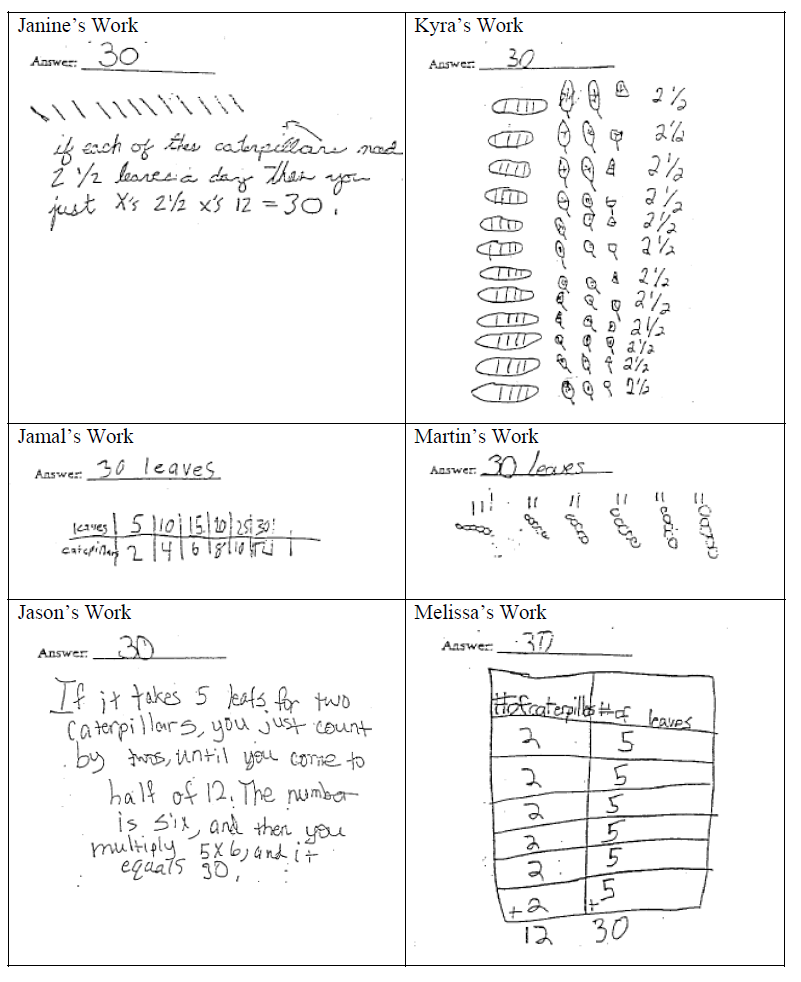 Janine's Work
Answer: 30
if each of the caterpillars had
2 1/2 leaves a day then you
just X's 2 1/2 x's 12 = 30.
Kyra's Work
Answer: 30
2 1/2
2 1/2
2 1/2
2 1/2
2 1/2
2 1/2
2 1/2
2 1/2
2 1/2
2 1/2
2 1/2
2 1/2
Jamal's Work
Answer: 30 leaves
leaves 5 10 15 20 25 30
caterpillars 2 4 6 8 10 12
Martin's Work
Answer: 30 leaves
Jason's Work
Answer: 30
If it takes 5 leafs for two
caterpillars, you just count
by twos, until you come to
half of 12. The number
is six, and then you
multiply 5x6, and it
equals 30.
Melissa's Work
Answer: 30
# of caterpillers # of leaves
2 5
2 5
2 5
2 5
2 5
+2 +5
12 30